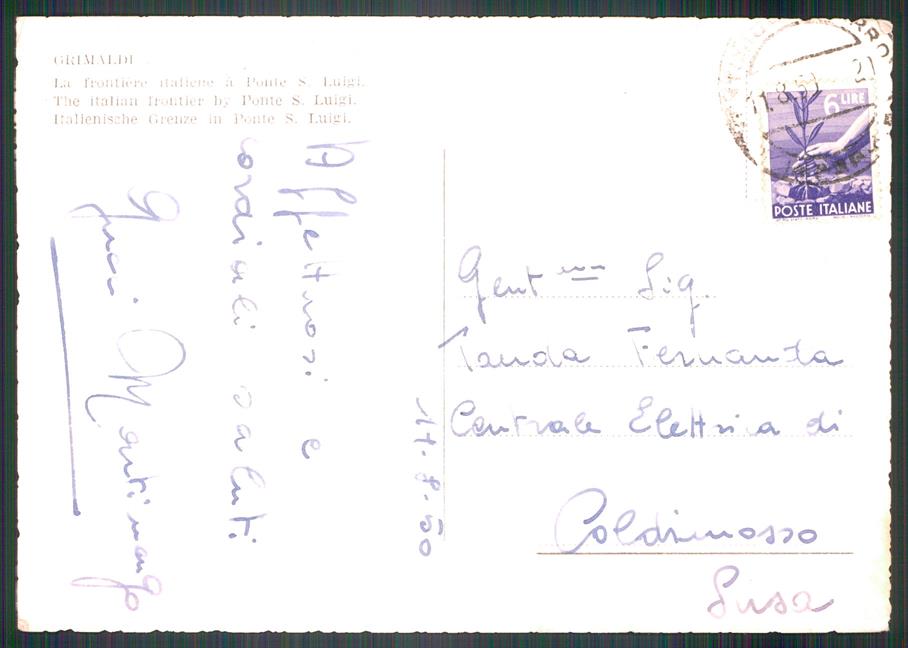 GRIMALDI
La frontière italiene à Ponte S. Luigi.
The italian frontier by Ponte S. Luigi.
Italienische Grenze in Ponte S. Luigi.
Affettuosi e
cordiali saluti
11.8.50
6 LIRE
POSTE ITALIANE
11.8.50
Gent ma Sig.
Tanda Fernanda
Centrale Elettrica di
Coldimosso
Susa